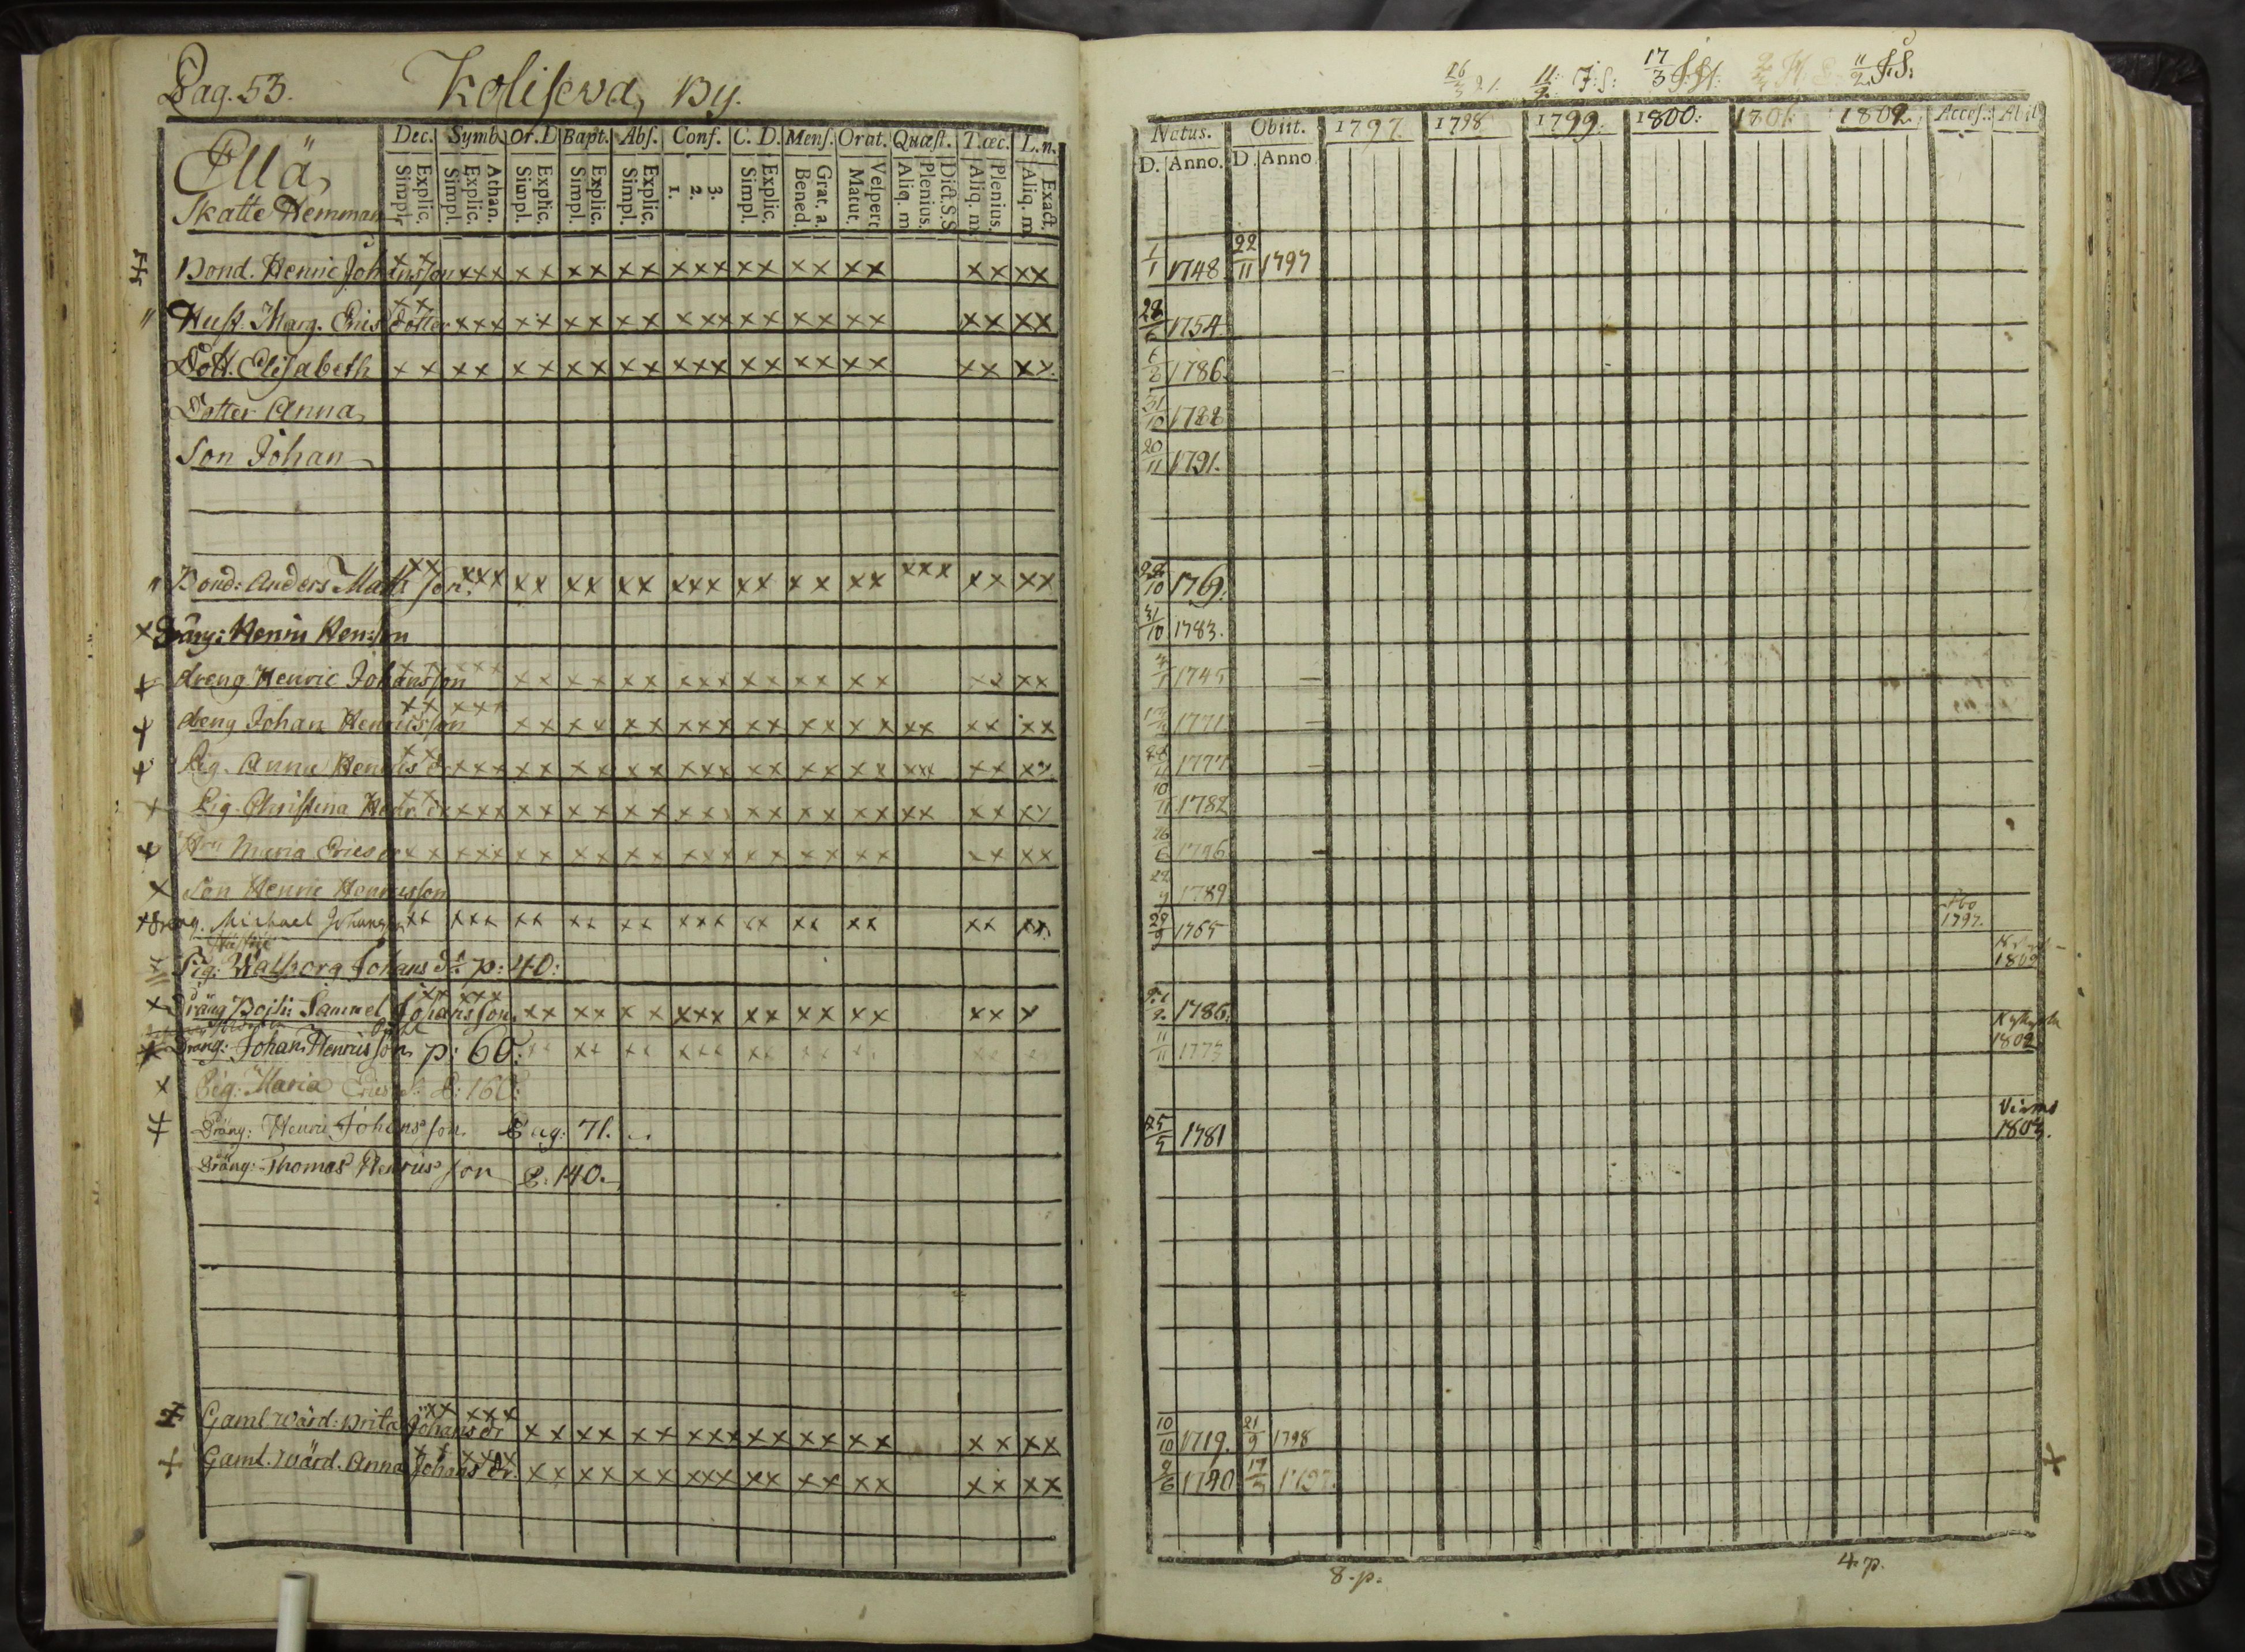 Pag. 53. Koliseva By.
Ellä
Skatte Hemman
Dec. Symb. Or. D Bapt. Abs. Conf. C. D. Mens. Orat. Quæst. T. œc. L. n.
Simpl. Explic. Simpl. Explic. Athan. Simpl. Explic. Simpl. Explic. Simpl. Explic. 1. 2. 3. Simpl. Explic. Bened. Grat. a. Matut. Vespert. Aliq. m Plenius. Dict. S.S Aliq. m Plenius. Aliq. m Exact.
Bond. Henric Johansson xx xxx xx xx xx xxx xx xx xx xx xx
" Hust. Marg. Erics dotter xx xxx xx xx xx xxx xx xx xx xx xx
Dott. Elisabeth xx xx xx xx xx xxx xx xx xx xx xx
Dotter Anna
Son Johan
" Bond: Anders Matts son xx xxx xx xx xx xxx xx xx xx xxx xx xx
x Dräng: Henric Henr:son
dreng Henric Johansson xx xxx xx xx xx xxx xx xx xx xx xx
dreng Johan Henricsson xx xxx xx xx xx xxx xx xx xx xx xx xx
Pig. Anna Henrics dr xx xxx xx xx xx xxx xx xx xx xxx xx xx
Pig. Christina Henr. dr xx xxx xx xx xx xxx xx xx xx xx xx xx
Maria Erics dr xx xxx xx xx xx xxx xx xx xx xx xx
x Son Henric Henricsson
x Dreng. Michael Johansson xx xxx xx xx xx xxx xx xx xx xx xx
Pig: Walborg Johans dr p: 40:
x Dräng Samuel Johansson xx xxx xx xx xx xxx xx xx xx xx x
Dräng: Johan Henricsson p: 60: xx xx xx xxx xx xx
x Pig: Maria Erics dr P: 160:
Dräng: Henric Johansson. Pag: 71.
Dräng: Thomas Henricsson P: 140.
Gaml. Wärd: Brita Johans dr xx xxx xx xx xx xxx xx xx xx xx xx
Gaml. Wärd. Anna Johans dr. xx xxx xx xx xx xxx xx xx xx xx xx
11/2 J:S: 17/3 11/2 J.S:
Natus. Obiit. 1797. 1798 1799. 1800: 1801. 1802. Access: Abit
D. Anno. D. Anno
1/1 1748 22/11 1797
28/ 1754
1786.
31/10 1788
20/11 1791.
10 1769.
31/10 1783.
1745
1771
1777
10/11 1782
26/6
22/9 1789
29/9 1765 Åbo 1797.
1802
2 1786.
11/11 1773 1802
25/5 1781 Virmo 1803.
10/10 1719. 21/9 1798
6 1740 17/3 1797.
8. p. 4. p.